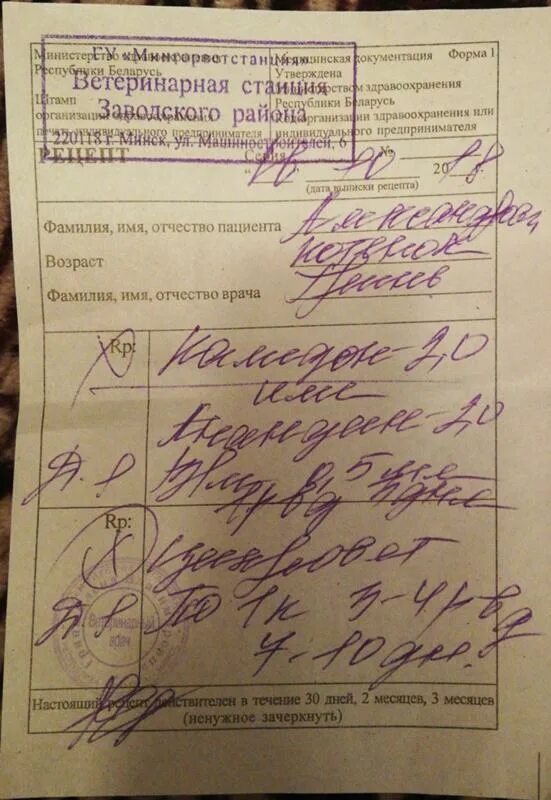 ГУ «Мингорветстанция»
Ветеринарная станция
Заводского района
220118 г. Минск, ул. Машиностроителей, 6
Министерство здравоохранения
Республики Беларусь
Штамп
организации здравоохранения
печать индивидуального предпринимателя
Медицинская документация Форма 1
Утверждена
Министерством здравоохранения
Республики Беларусь
Код организации здравоохранения или
индивидуального предпринимателя
РЕЦЕПТ Серия №
" 26 " 10 2018
(дата выписки рецепта)
Фамилия, имя, отчество пациента
Возраст котенок
Фамилия, имя, отчество врача
Rp: Камидон-2,0
или
Анандин-2,0
D.S. В/м 0,5 мл
Rp: Ципровет
D.S. По 1 к 3-4 р в д
7-10 дн.
Ветеринарный
врач
Настоящий рецепт действителен в течение 30 дней, 2 месяцев, 3 месяцев
(ненужное зачеркнуть)